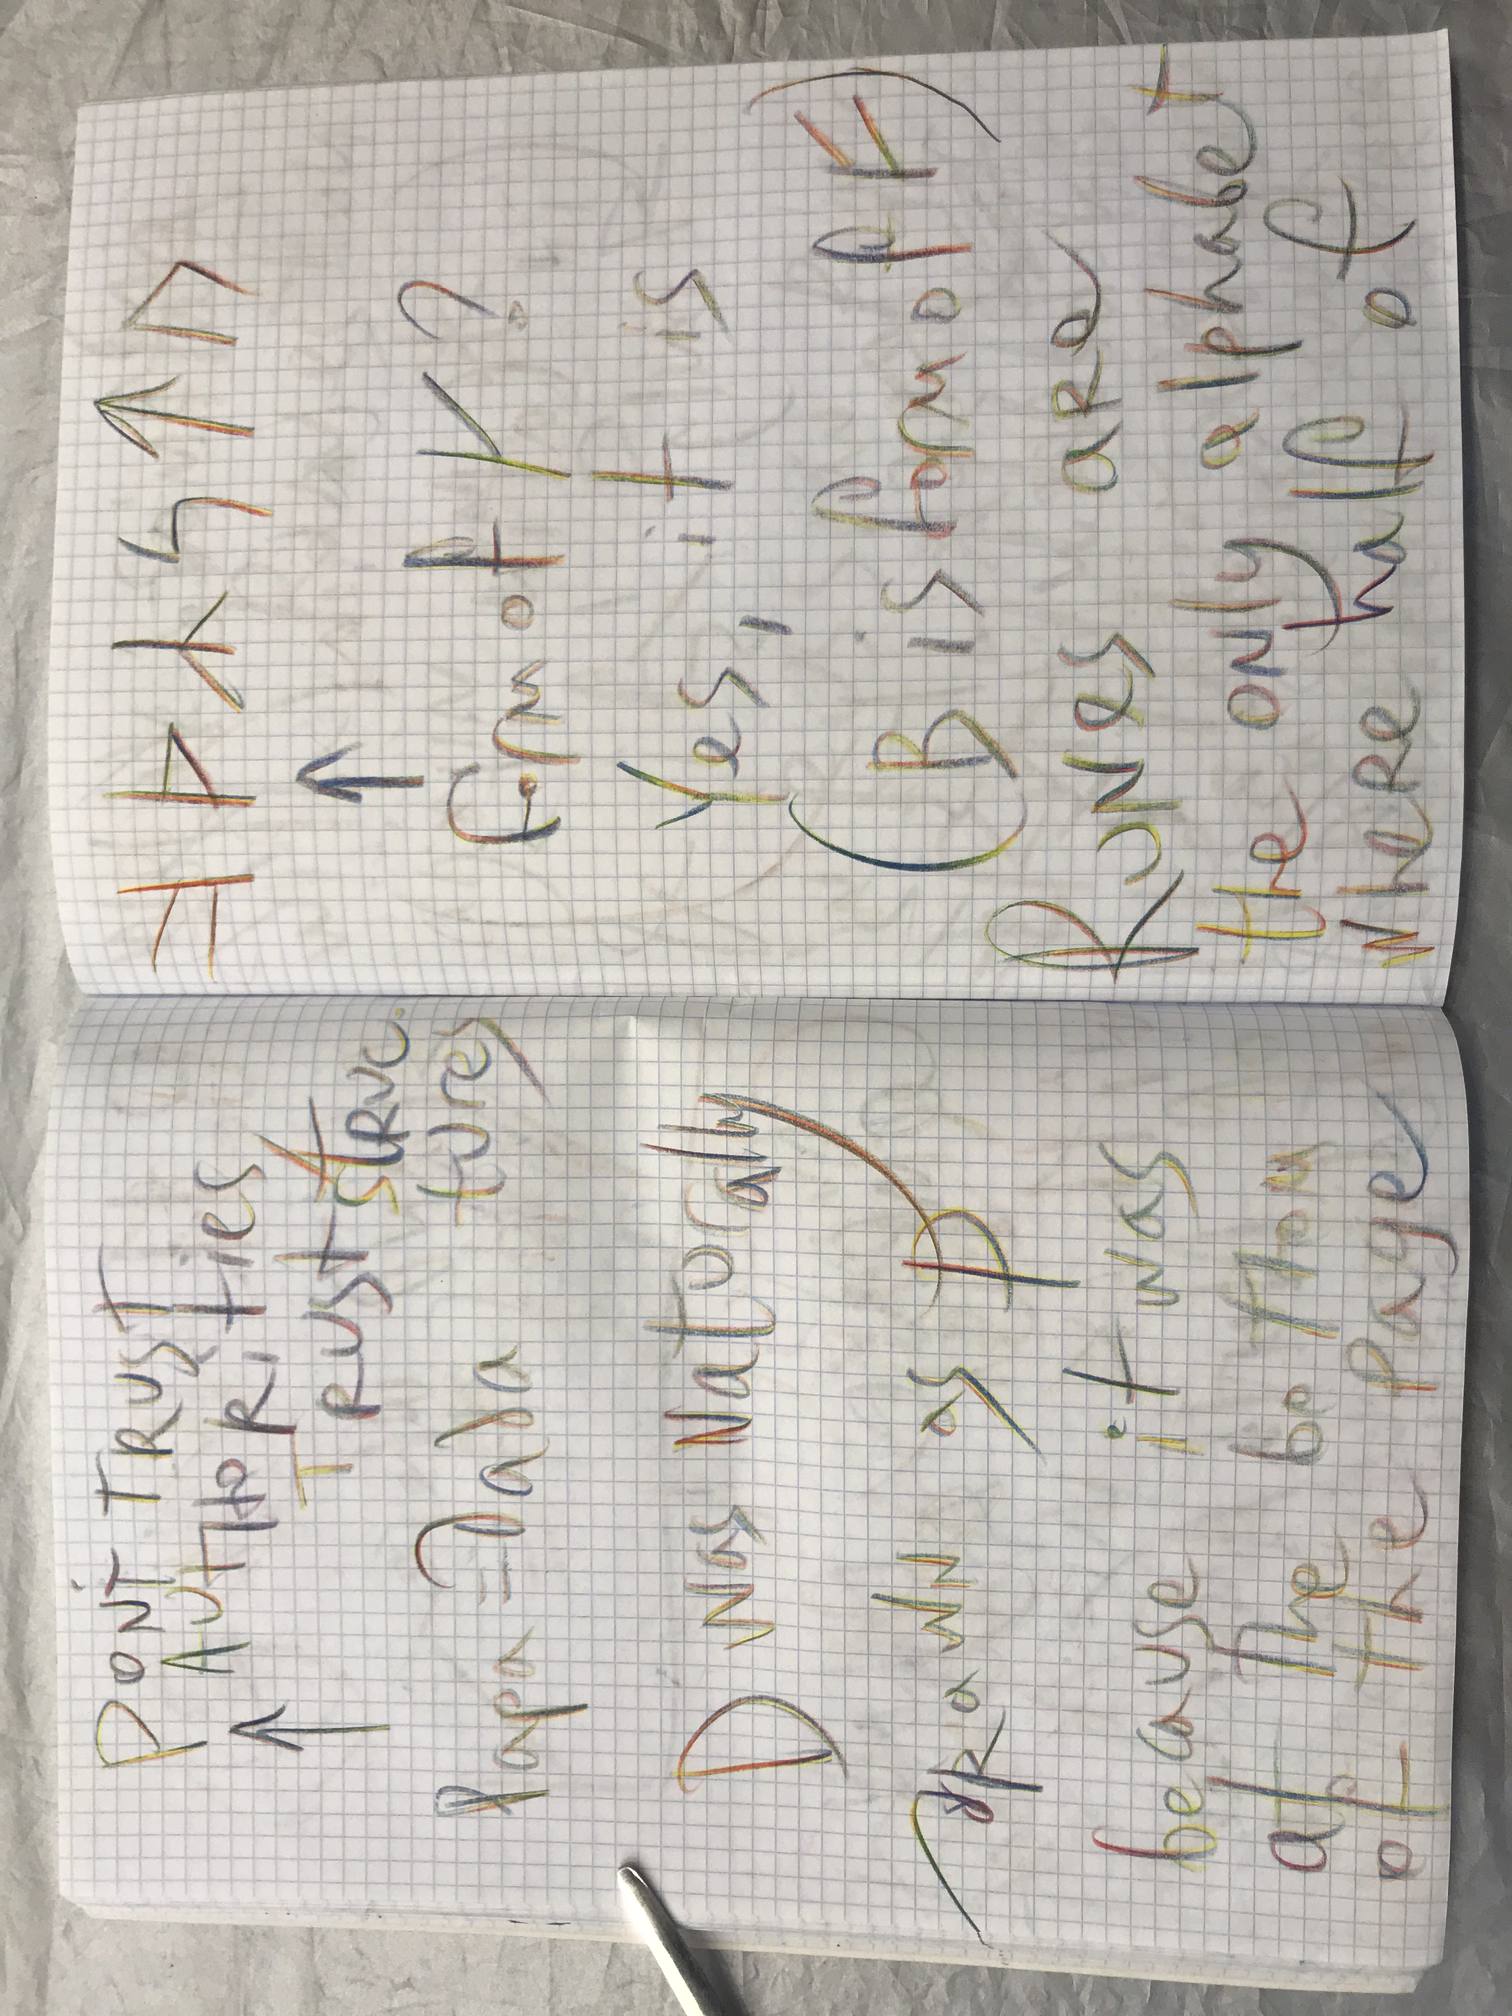 PON'T TRUST
AUTHORITIES
TRUST STRUC-
TURE,
papa = ?ada
D was Naturally
dRawN as P
because it was
at the bottom
of the page
ᚦ ᛣ ᛋ ᛏ ᚢ
↑
form of ᚴ ?
Yes, it is
(B is form of ᚠ)
RUNes aRe
the ONly alphabet
wheRe half of